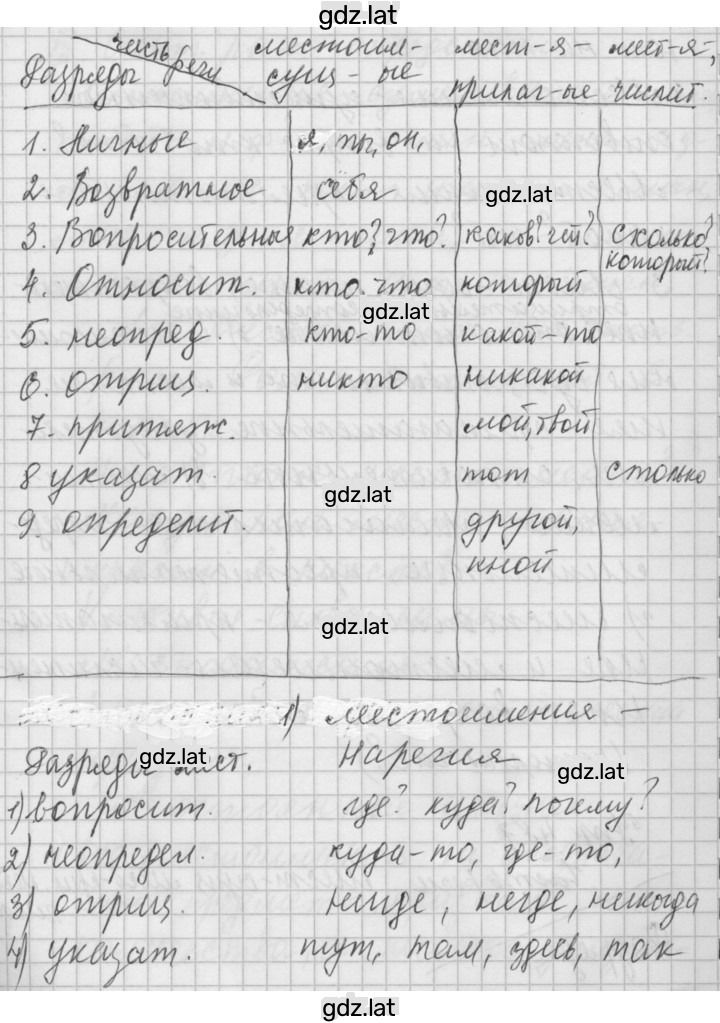 gdz.lat
часть речи местоим- мест-я- мест-я,
Разряды сущ-ые прилаг-ые числит.
1. Личные я, ты, он,
2. Возвратное себя gdz.lat
3. Вопросительные кто? что? каков? чей? сколько?
который?
4. Относит. кто. что который
gdz.lat
5. неопред. кто-то какой-то
6. отриц. никто никакой
7. притяж. мой, твой
8 указат. тот столько
gdz.lat
9. определит. другой,
иной
gdz.lat
1) местоимения -
Разряды мест. наречия
gdz.lat gdz.lat
1) вопросит. где? куда? почему?
2) неопредел. куда-то, где-то,
3) отриц. нигде, негде, никогда
4) указат. тут, там, здесь, так
gdz.lat